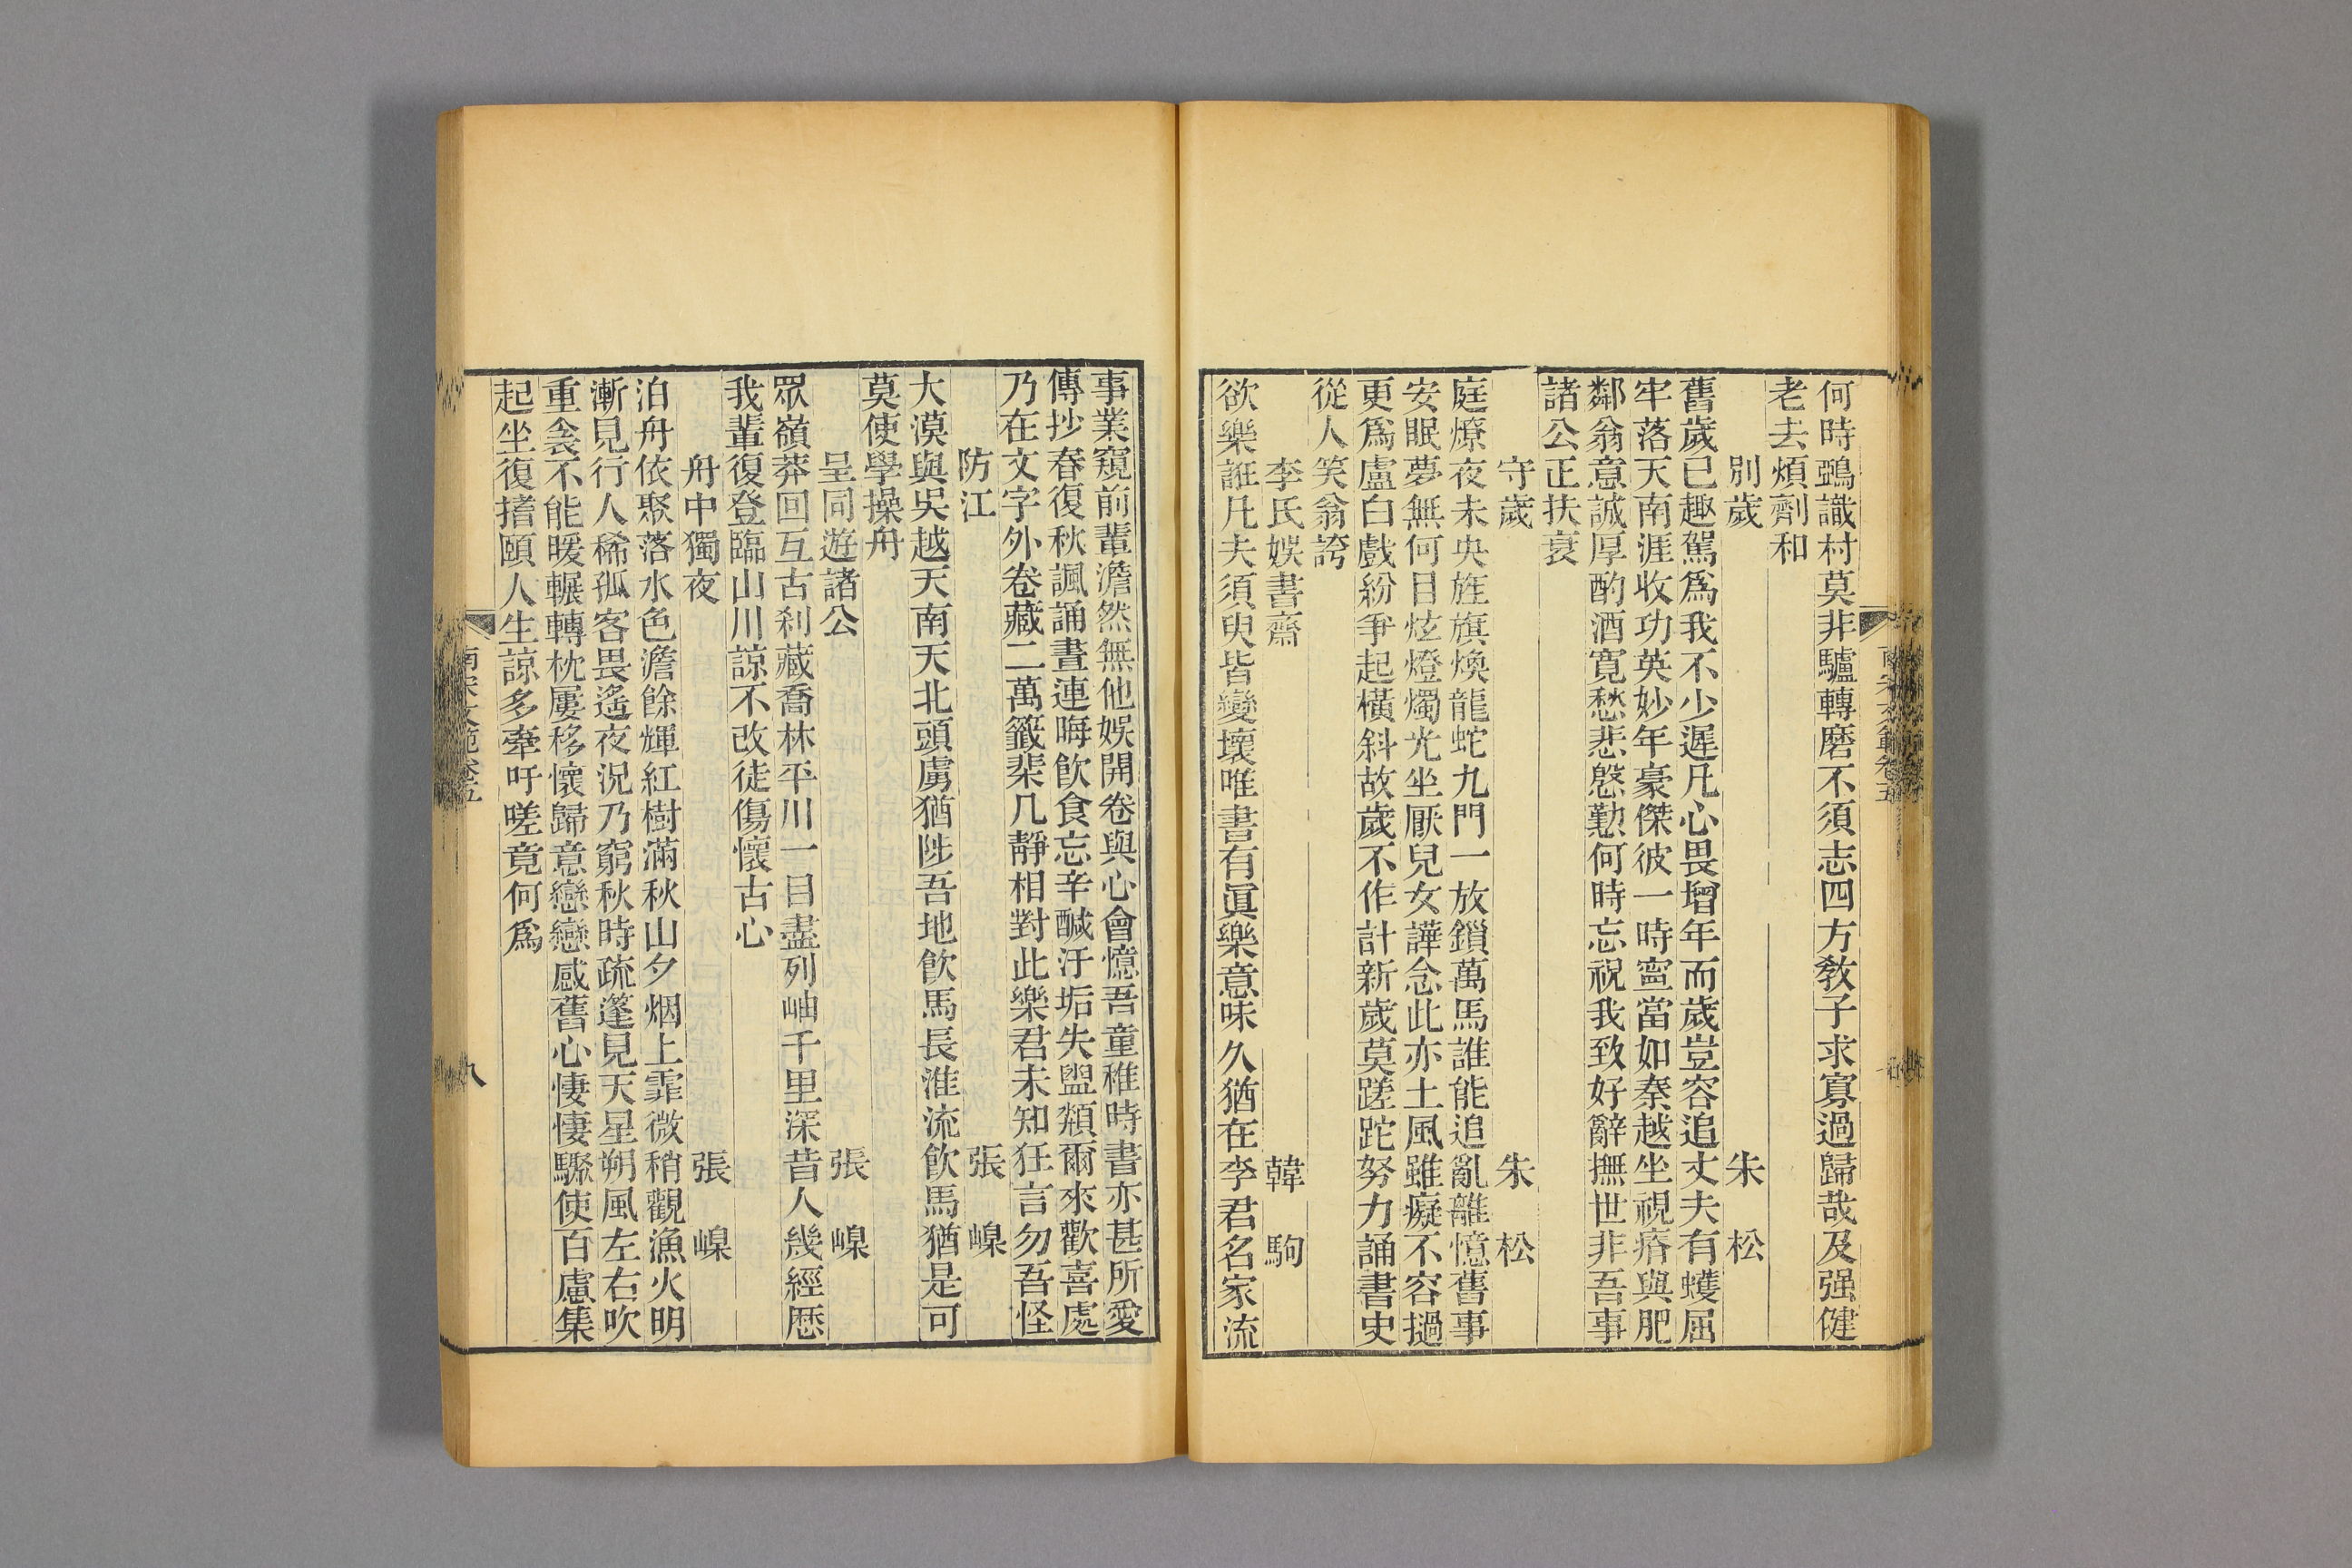 何時鵶識村莫非驢轉磨不須志四方教子求寡過歸哉及强健
老去煩劑和
別歲 朱松
舊歲已趣駕爲我不少遲凡心畏增年而歲豈容追丈夫有蠖屈
牢落天南涯收功英妙年豪傑彼一時寧當如秦越坐視瘠與肥
鄰翁意誠厚酌酒寬愁悲慇懃何時忘祝我致好辭撫世非吾事
諸公正扶衰
守歲 朱松
庭燎夜未央旌旗煥龍蛇九門一放鎖萬馬誰能追亂離憶舊事
安眠夢無何目炫燈燭光坐厭兒女譁念此亦土風雖癡不容撾
更爲盧白戲紛爭起橫斜故歲不作計新歲莫蹉跎努力誦書史
從人笑翁誇
李氏娛書齋 韓駒
欲樂誑凡夫須臾皆變壞唯書有眞樂意味久猶在李君名家流
事業窺前輩澹然無他娛開卷與心會憶吾童稚時書亦甚所愛
傳抄春復秋諷誦晝連晦飮食忘辛醎汙垢失盥頮爾來歡喜處
乃在文字外卷藏二萬籤棐几靜相對此樂君未知狂言勿吾怪
防江 張嵲
大漠與吳越天南天北頭虜猶陟吾地飮馬長淮流飮馬猶是可
莫使學操舟
呈同遊諸公 張嵲
眾嶺莽回互古刹藏喬林平川一目盡列岫千里深昔人幾經歷
我輩復登臨山川諒不改徒傷懷古心
舟中獨夜 張嵲
泊舟依聚落水色澹餘輝紅樹滿秋山夕烟上霏微稍觀漁火明
漸見行人稀孤客畏遙夜況乃窮秋時疏蓬見天星朔風左右吹
重衾不能暖輾轉枕屢移懷歸意戀戀感舊心悽悽驟使百慮集
起坐復搘頤人生諒多牽吁嗟竟何爲
南宋文範卷五
八